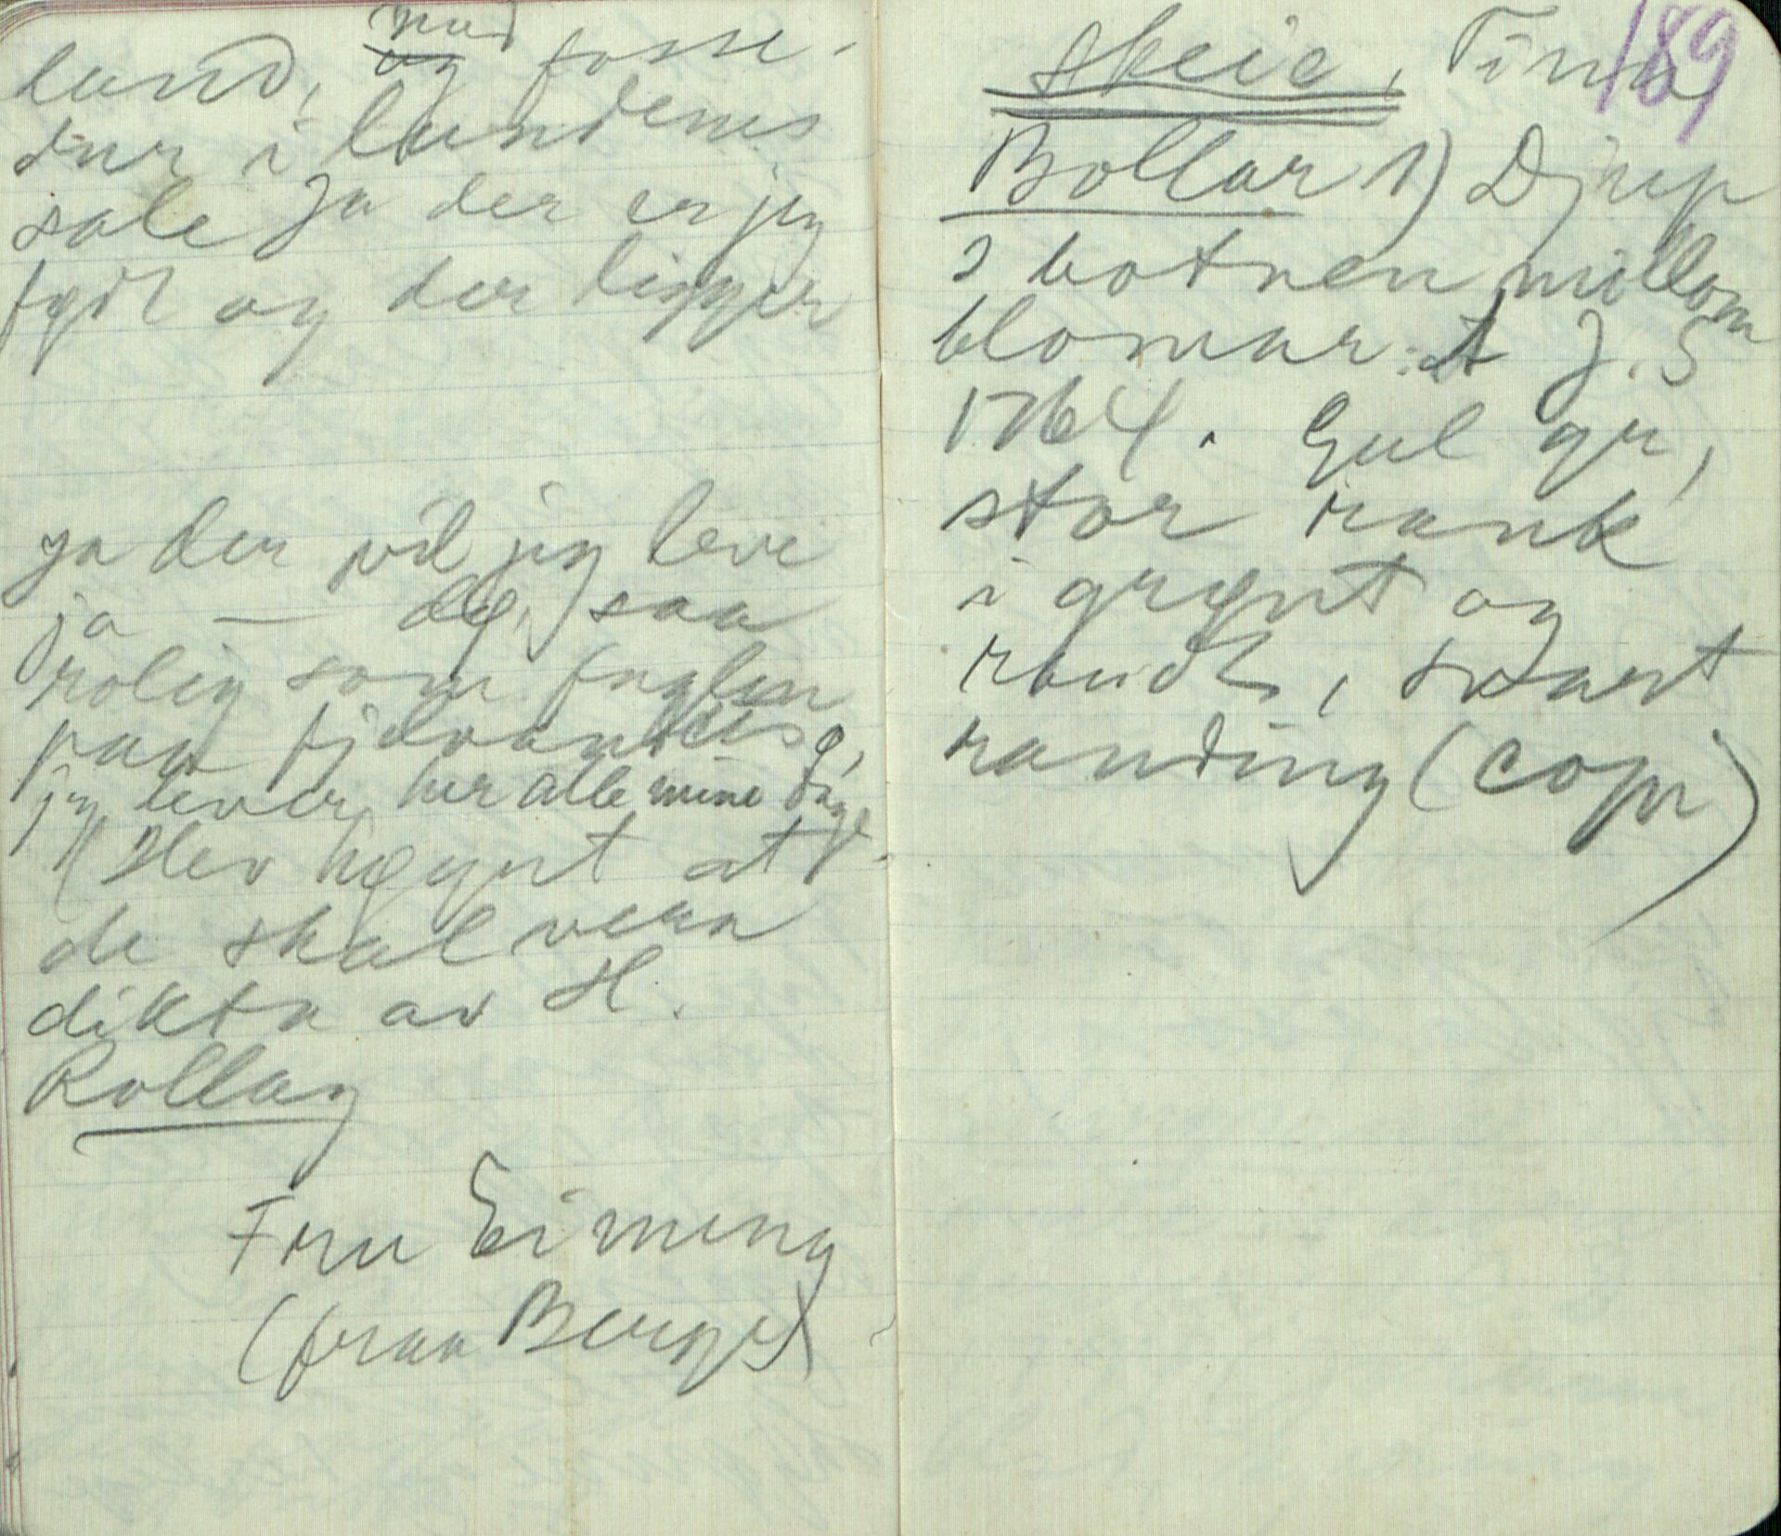 land, med fosse-
dur i lundenes
sale Ja der er jeg
født og der ligger
ja der vil jeg leve
ja — dø, saa
rolig som fuglen
paa fjelvandets
jeg lever her alle mine dage
Hev høyrt at
de skal vera
dikta av H.
Rollag
Fru Eimeng
(fraa Berge)
189
Skeie, Tinn
Bollar 1) Djup
I botnen millom
blomar: A J. S
1764. Gul gr,
stor rank
i grønt og
raudt, svart
randing (copr)